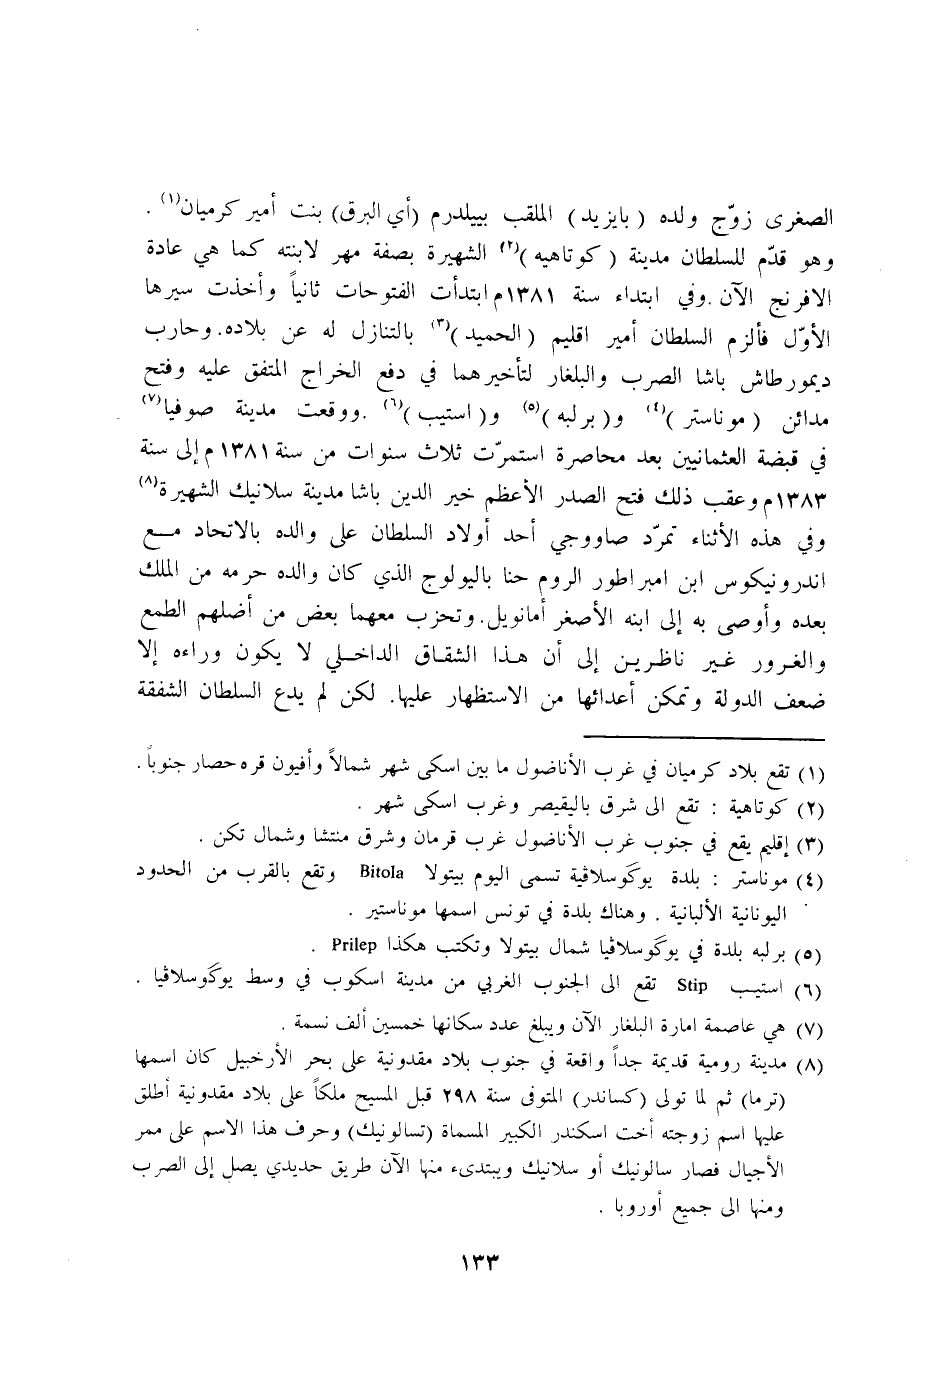 الصغرى زوّج ولده ( بايزيد ) الملقب بييلدرم (أي البرق) بنت أمير كرميان(١) .
وهو قدّم للسلطان مدينة ( كوتاهيه )(٢) الشهيرة بصفة مهر لابنته كما هي عادة
الافرنج الآن .وفي ابتداء سنة ١٣٨١م ابتدأت الفتوحات ثانياً وأخذت سيرها
الأوّل فألزم السلطان أمير اقليم (الحميد)(٣) بالتنازل له عن بلاده. وحارب
ديمورطاش باشا الصرب والبلغار لتأخيرهما في دفع الخراج المتفق عليه وفتح
مدائن ( موناستر )(٤) و( برلبه )(٥) و( استيب )(٦) .ووقعت مدينة صوفيا(٧)
في قبضة العثمانيين بعد محاصرة استمرّت ثلاث سنوات من سنة ١٣٨١ م إلى سنة
١٣٨٣م وعقب ذلك فتح الصدر الأعظم خير الدين باشا مدينة سلانيك الشهيرة(٨)
وفي هذه الأثناء تمرّد صاووجي أحد أولاد السلطان على والده بالاتحاد مع
اندرونيكوس ابن امبراطور الروم حنا باليولوج الذي كان والده حرمه من الملك
بعده وأوصى به إلى ابنه الأصغر أمانويل. وتحزب معهما بعض من أضلهم الطمع
والغرور غير ناظرين إلى أن هذا الشقاق الداخلي لا يكون وراءه إلا
ضعف الدولة وتمكن أعدائها من الاستظهار عليها. لكن لم يدع السلطان الشفقة
(١) تقع بلاد كرميان في غرب الأناضول ما بين اسكى شهر شمالاً وأفيون قره حصار جنوباً .
(٢) كوتاهية : تقع الى شرق باليقيصر وغرب اسكى شهر .
(٣) إقليم يقع في جنوب غرب الأناضول غرب قرمان وشرق منتشا وشمال تكن .
(٤) موناستر : بلدة يوگوسلاڤية تسمى اليوم بيتولا Bitola وتقع بالقرب من الحدود
اليونانية الألبانية . وهناك بلدة في تونس اسمها موناستير .
(٥) برلبه بلدة في يوگوسلاڤيا شمال بيتولا وتكتب هكذا Prilep .
(٦) استيب Stip تقع الى الجنوب الغربي من مدينة اسكوب في وسط يوگوسلاڤيا .
(٧) هي عاصمة امارة البلغار الآن ويبلغ عدد سكانها خمسين ألف نسمة .
(٨) مدينة رومية قديمة جداً واقعة في جنوب بلاد مقدونية على بحر الأرخبيل كان اسمها
(ترما) ثم لما تولى (كساندر) المتوفى سنة ٢٩٨ قبل المسيح ملكاً على بلاد مقدونية أطلق
عليها اسم زوجته أخت اسكندر الكبير المسماة (تسالونيك) وحرف هذا الاسم على ممر
الأجيال فصار سالونيك أو سلانيك ويبتدىء منها الآن طريق حديدي يصل إلى الصرب
ومنها الى جميع أوروبا .
١٣٣